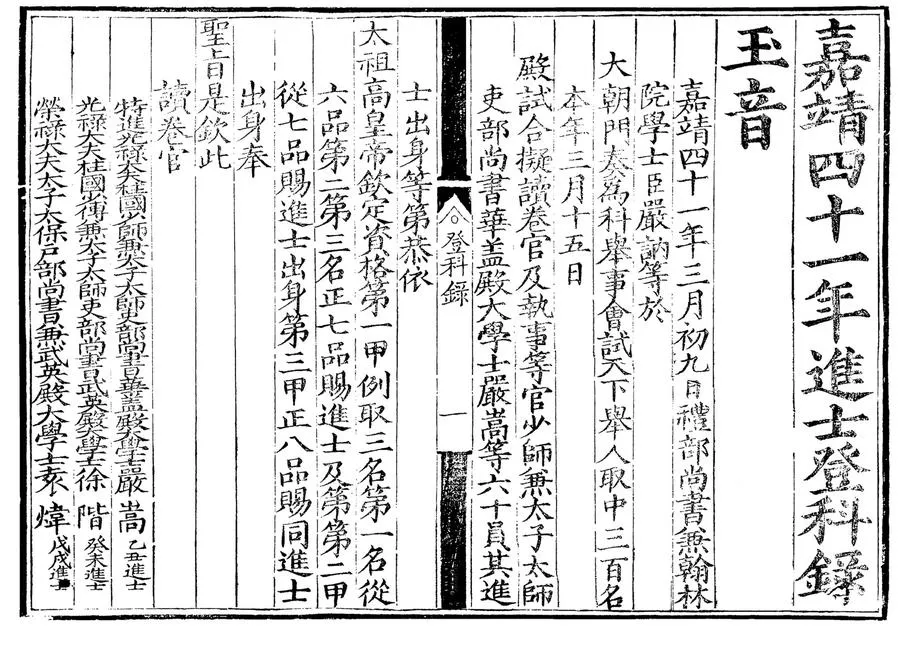 嘉靖四十一年進士登科錄
玉音
嘉靖四十一年三月初九日禮部尚書兼翰林
院學士臣嚴訥等於
大朝門奏為科舉事會試天下舉人取中三百名
本年三月十五日
殿試合擬讀卷官及執事等官少師兼太子太師
吏部尚書華盖殿大學士嚴嵩等六十員其進
士出身等第恭依
登科錄
一
太祖高皇帝欽定資格第一甲例取三名第一名從
六品第二第三名正七品賜進士及第第二甲
從七品賜進士出身第三甲正八品賜同進士
出身奉
聖旨是欽此
讀卷官
特進光祿大夫柱國少師兼太子太師吏部尚書華盖殿大學士嚴嵩乙丑進士
光祿大夫柱國少傅兼太子太師吏部尚書武英殿大學士徐階癸未進士
榮祿大夫太子太保戶部尚書兼武英殿大學士袁煒戊戌進士